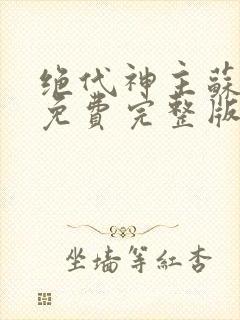 绝代神主蘇
免費完整版
坐墙等紅杏